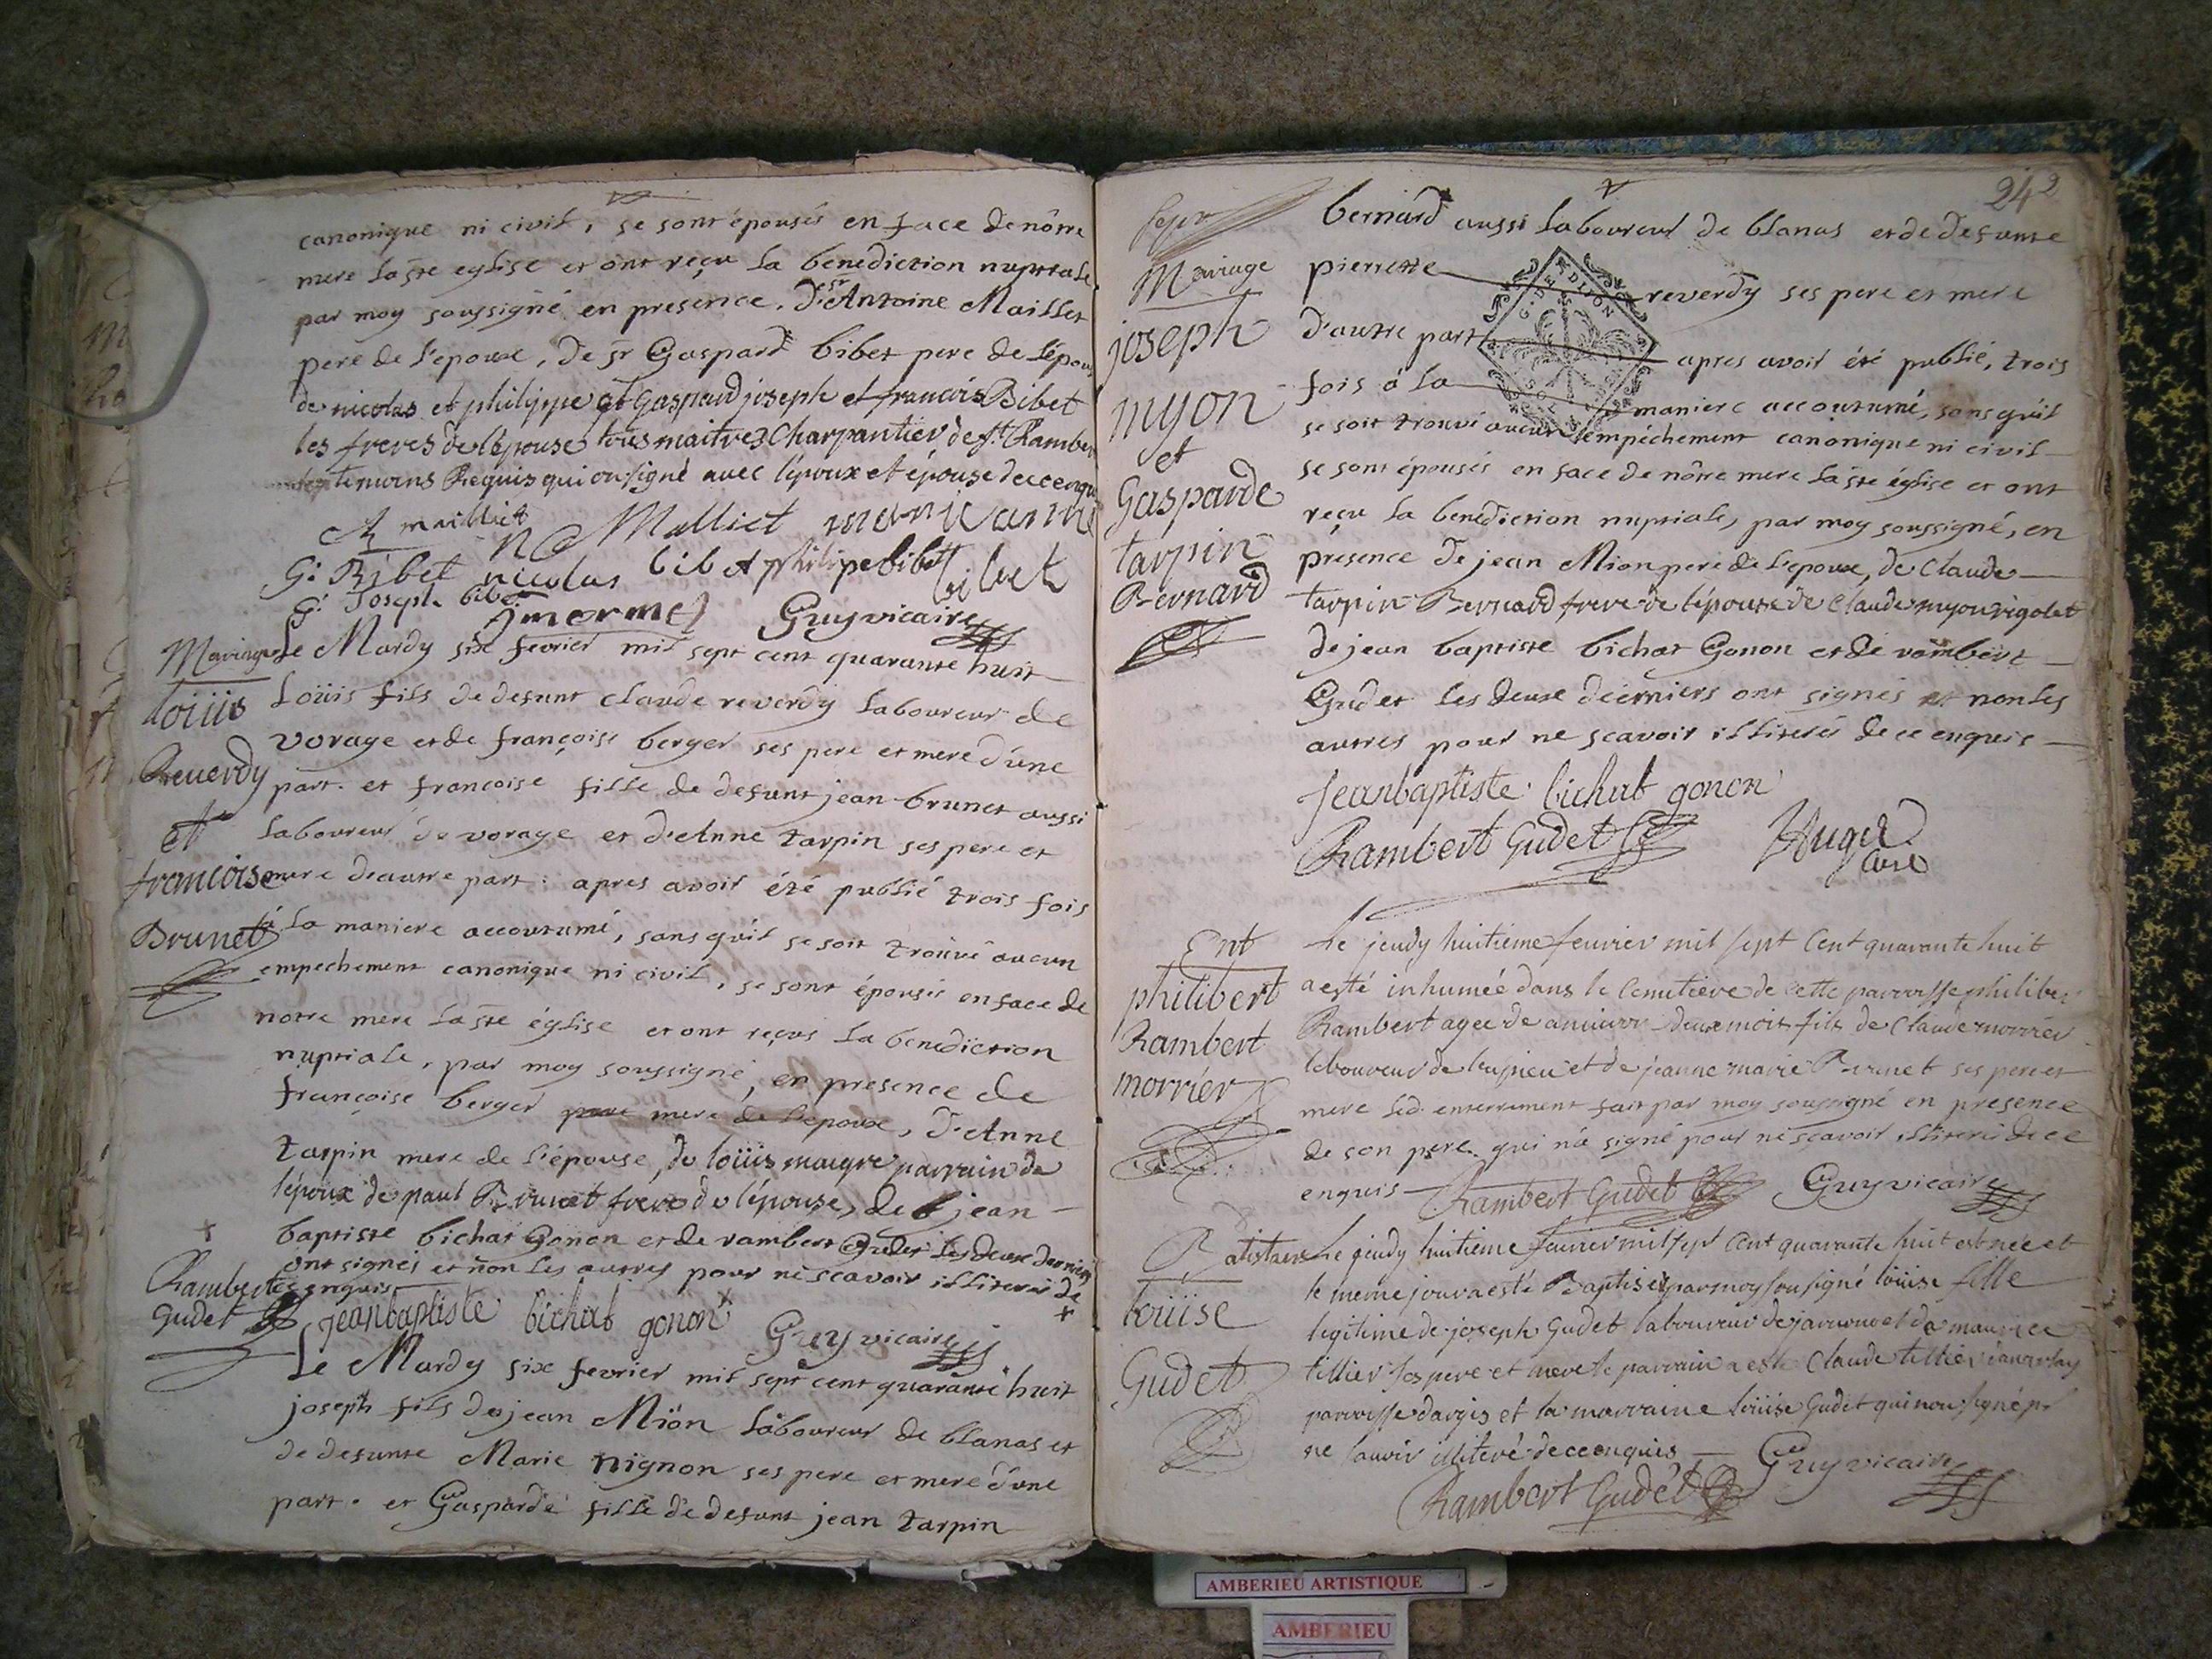 canonique ni civil, se sont épousés en face de nôtre
mere la ste eglise et ont reçu la benediction nuptiale
par moy soussigné en presence, d'sr Antoine Maillet
pere de l'epoux, de sr Gaspard bibet pere de l'épou
de nicolas et philippe et Gaspard joseph et francois Bibet
les freres de lépouse tous maitres Charpantier de st Ramber
temoins Requis qui on signé avec l'époux et épouse de ce enqu
A maillet N Malliet marie anne
G. Bibet nicolas bibet philipe bibet bibet
G. Joseph bibet
jmermet Guy vicaire
Mariage
loüis
Reverdy
et
francoise
Brunet
Le Mardy six fevrier mil sept cent quarante huit
Loüis fils de defunt claude reverdy laboureur de
vorage et de françoise berger ses pere et mere d'une
part. et francoise fille de defunt jean brunet aussi
laboureur de vorage et d'Anne tarpin ses pere et
mere d'autre part: apres avoir été publié trois fois
à la maniere accoutumé, sans qu'il se soit trouvé aucun
empechement canonique ni civil, se sont épousés en face de
notre mere la ste église et ont reçus la benediction
nuptiale, par moy soussigné, en presence de
françoise berger mere de l'epoux, d'Anne
tarpin mere de l'épouse, de loüis maigre parrain de
lépoux de paul Brunet frere de lépouse, de jean
baptiste bichat Gonon et de rambert Gudet les deux derniers
ont signés et non les autres pour ne scavoir illiterés de
ce enquis
Rambert
Gudet
jeanbaptiste bichat gonon Guy vicaire
Le Mardy six fevrier mil sept cent quarante huit
joseph fils de jean Mïon laboureur de blanas et
de defunte Marie nignon ses pere et mere d'une
part. et Gasparde fille de defunt jean tarpin
242
Mariage
joseph
myon
et
Gasparde
tarpin
Bernard
bernard aussi laboureur de blanas et de defunte
pierrette reverdy ses pere et mere
d'autre part apres avoir été publié, trois
fois à la maniere accoutumé, sans qu'il
se soit trouvé aucun empéchement canonique ni civil
se sont épousés en face de nôtre mere la ste église et ont
reçu la benediction nuptiale, par moy soussigné, en
présence de jean Mion pere de l'epoux, de Claude
tarpin Bernard frere de lépouse de Claude myon rigolet
de jean baptiste bichat Gonon et de rambert
Gudet les deux derniers ont signés et non les
autres pour ne scavoir illiterés de ce enquis
Jeanbaptiste bichat gonon
Rambert Gudet Auger
Curé
Ent
philibert
Rambert
morrier
Le jeudy huitieme feuvier mil sept Cent quarante huit
a esté inhumée dans le Cemitiere de Cette parroisse philibert
Rambert agee de deux mois fils de Claude morrier
laboureur de et de jeanne marie Brunet ses pere et
mere led. enterrement fait par moy soussigné en presence
de son pere qui n'a signé pour ne scavoir illiteré de ce
enquis Rambert Gudet Guy vicaire
loüise
Gudet
Le jeudy huitieme feuvier mil sept Cent quarante huit est née et
le meme jour a esté Baptisée par moy sousigné loüise fille
legitime de joseph Gudet laboureur de et de maurice
tillier ses pere et mere le parrain a esté Claude tillier
parroisse d'argis et la marraine loüise Gudet qui non signé pr
ne sauvoir illiteré de ce enquis
Rambert Gudet Guy vicaire
AMBERIEU ARTISTIQUE
AMBERIEU